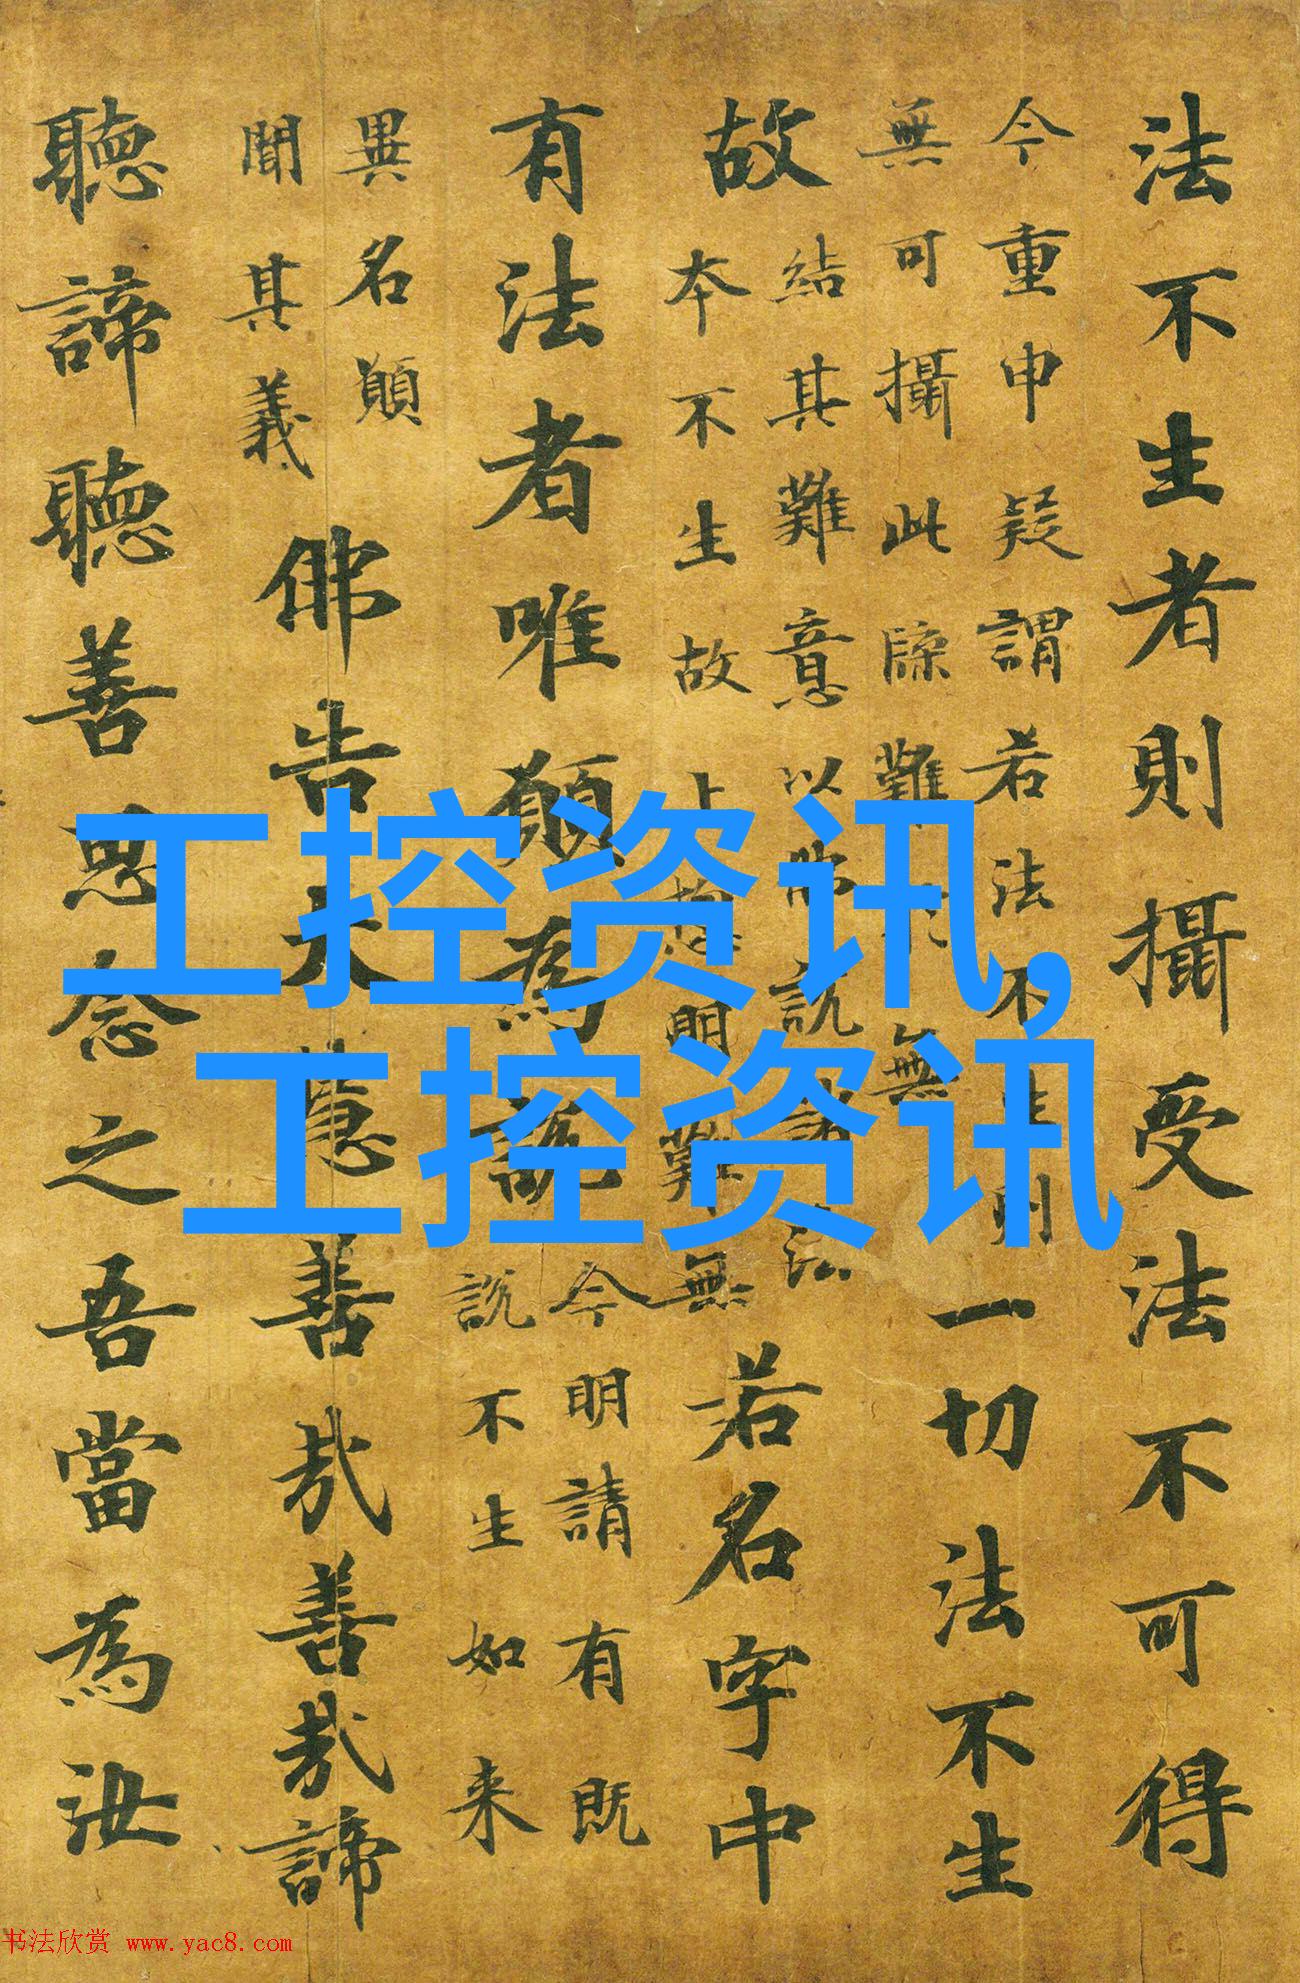 法不生者則攝受法不可得
今重申疑謂若法不生則
無可攝此牒難無
一切法不生
故
結其難意以佛說諸法
本不生故上明難無
若名字中
有法者唯願為說
今明請有既
說不生如来
異名願
聞其義
佛告大慧善哉善哉諦
聽諦聽善思念之吾當為汝
工控资讯,
工控资讯
书法欣赏 www.yac8.com